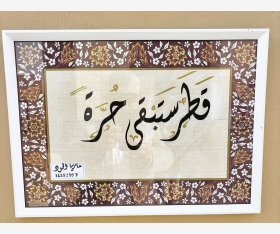 قَطَر سَتَبْقى حُرَّةً